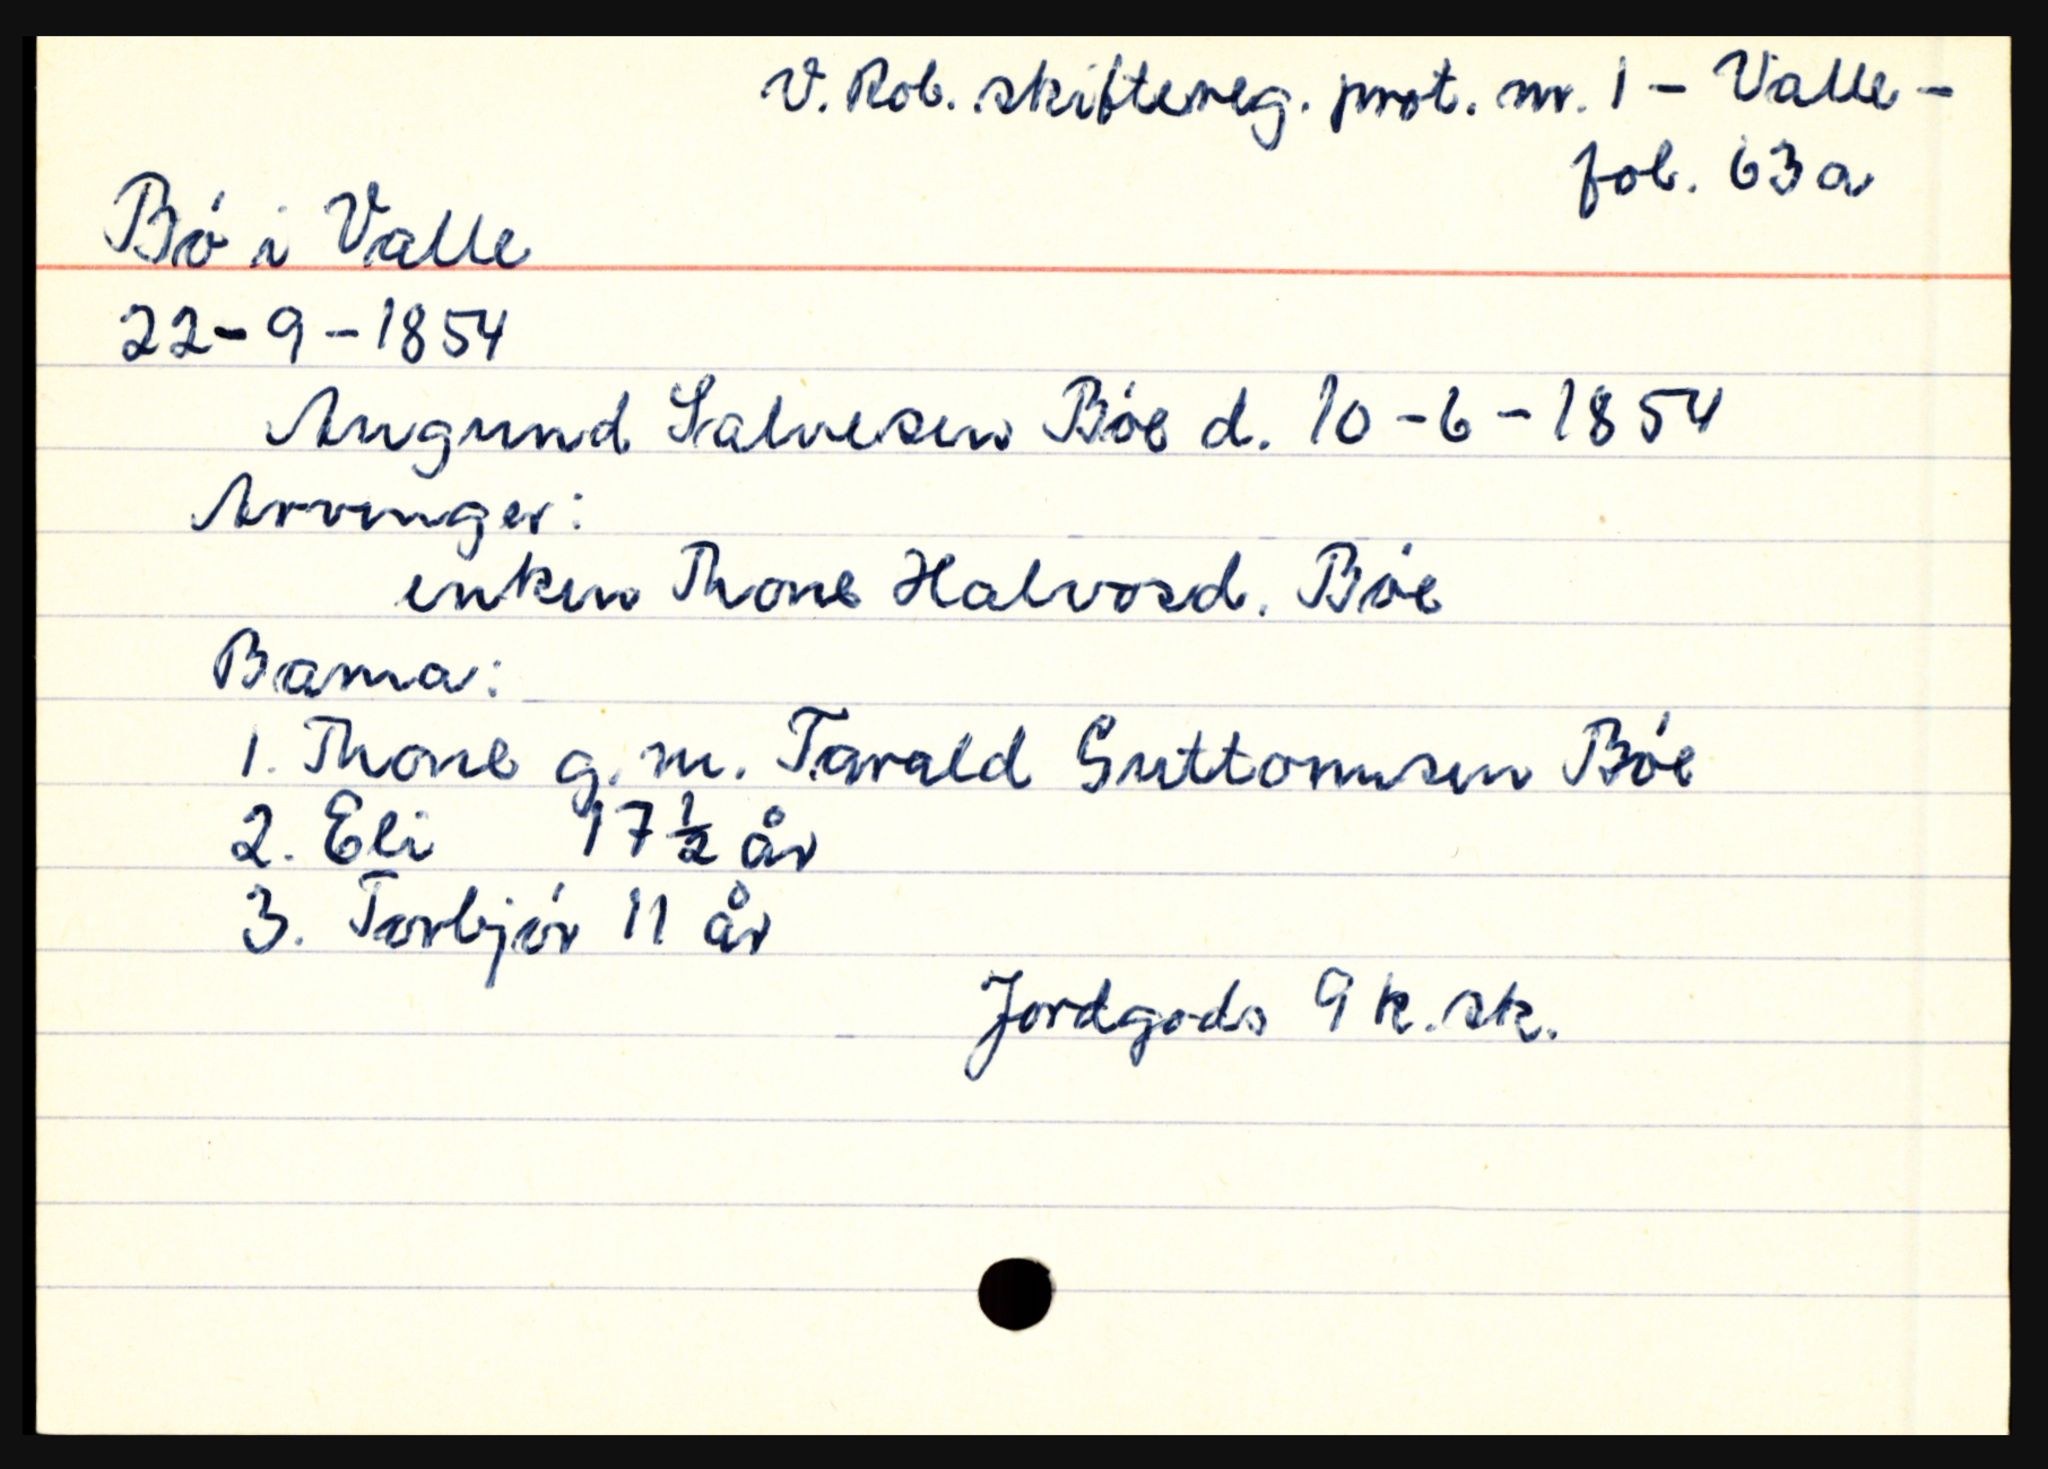 V. Rob. skiftereg. prot. nr. 1 - Valle -
fol. 63a
Bø i Valle
22-9-1854
Augund Salvesen Bøe d. 10-6-1854
Arvinger:
enken Thone Halvosd. Bøe
Barna:
1. Thone g.m. Tarald Guttormsen Bøe
2. Eli 17 ½ år
3. Torbjør 11 år
Jordgods 9 k.sk.